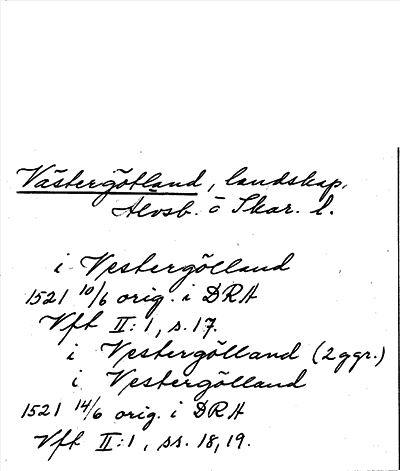 Västergötland, landskap.
Älvsb. o Skar. l.
i Vestergölland
1521 10/6 orig. i DRA
Vft II:1, s. 17.
i Vestergölland (2 ggr.)
i Vestergölland
1521 14/6 orig. i DRA
Vft II:1, ss. 18, 19.